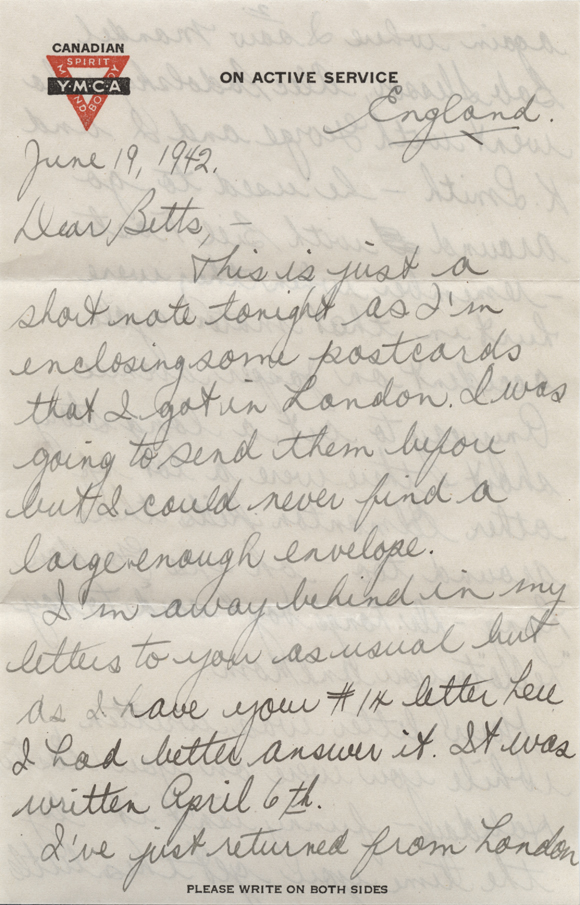 CANADIAN
SPIRIT
MIND
BODY
Y·M·C·A
ON ACTIVE SERVICE
England.
June 19, 1942.
Dear Betts,—
This is just a
short note tonight as I'm
enclosing some postcards
that I got in London. I was
going to send them before
but I could never find a
large enough envelope.
I'm away behind in my
letters to you as usual but
as I have your #14 letter here
I had better answer it. It was
written April 6th.
I've just returned from London
PLEASE WRITE ON BOTH SIDES